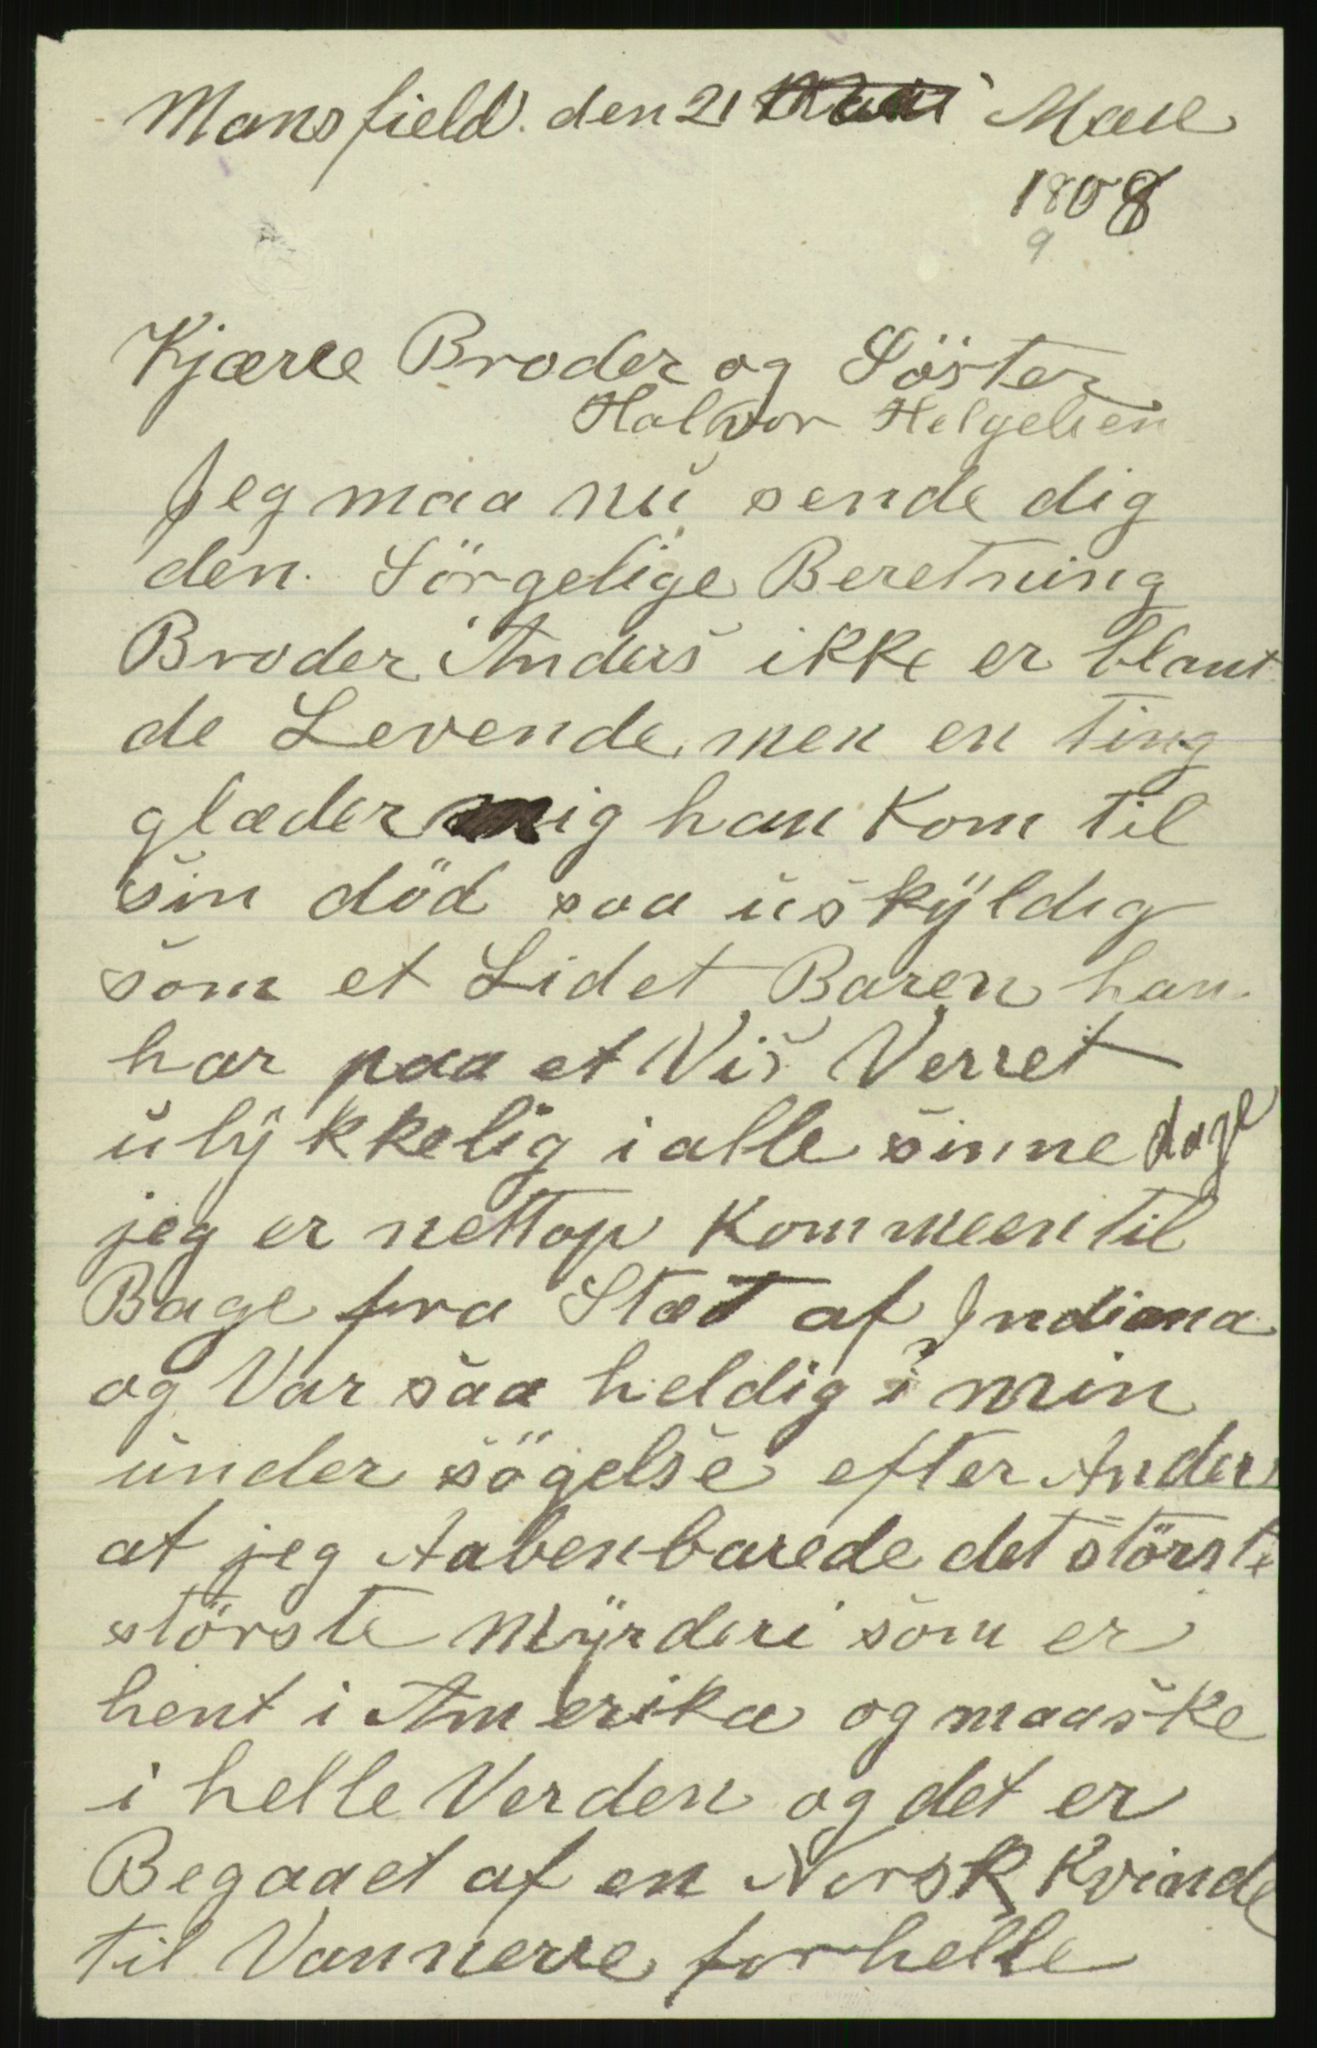 Mansfield. den 21 Maie
1808
9
Kjære Broder og Söster
Halvor Helgelien
Jeg maa nu sende dig
den Sörgelige Beretning
Broder Anders ikke er blant
de Levende men en Ting
glæder mig han kom til
sin död saa uskyldig
som et Lidet Baren han
har paa et Vis Verret
ulykkelig i alle sinne dage
jeg er nettop kommeen til
Bage fra Stæt af Indiana
og Var saa heldig i min
under sögelse efter Anders
at jeg Aabenbarede det störste
störste Myrderi som er
hent i Amerika og maaske
i helle Verden og det er
Begaaet af en Norsk Kvinde
til Vannerre for helle